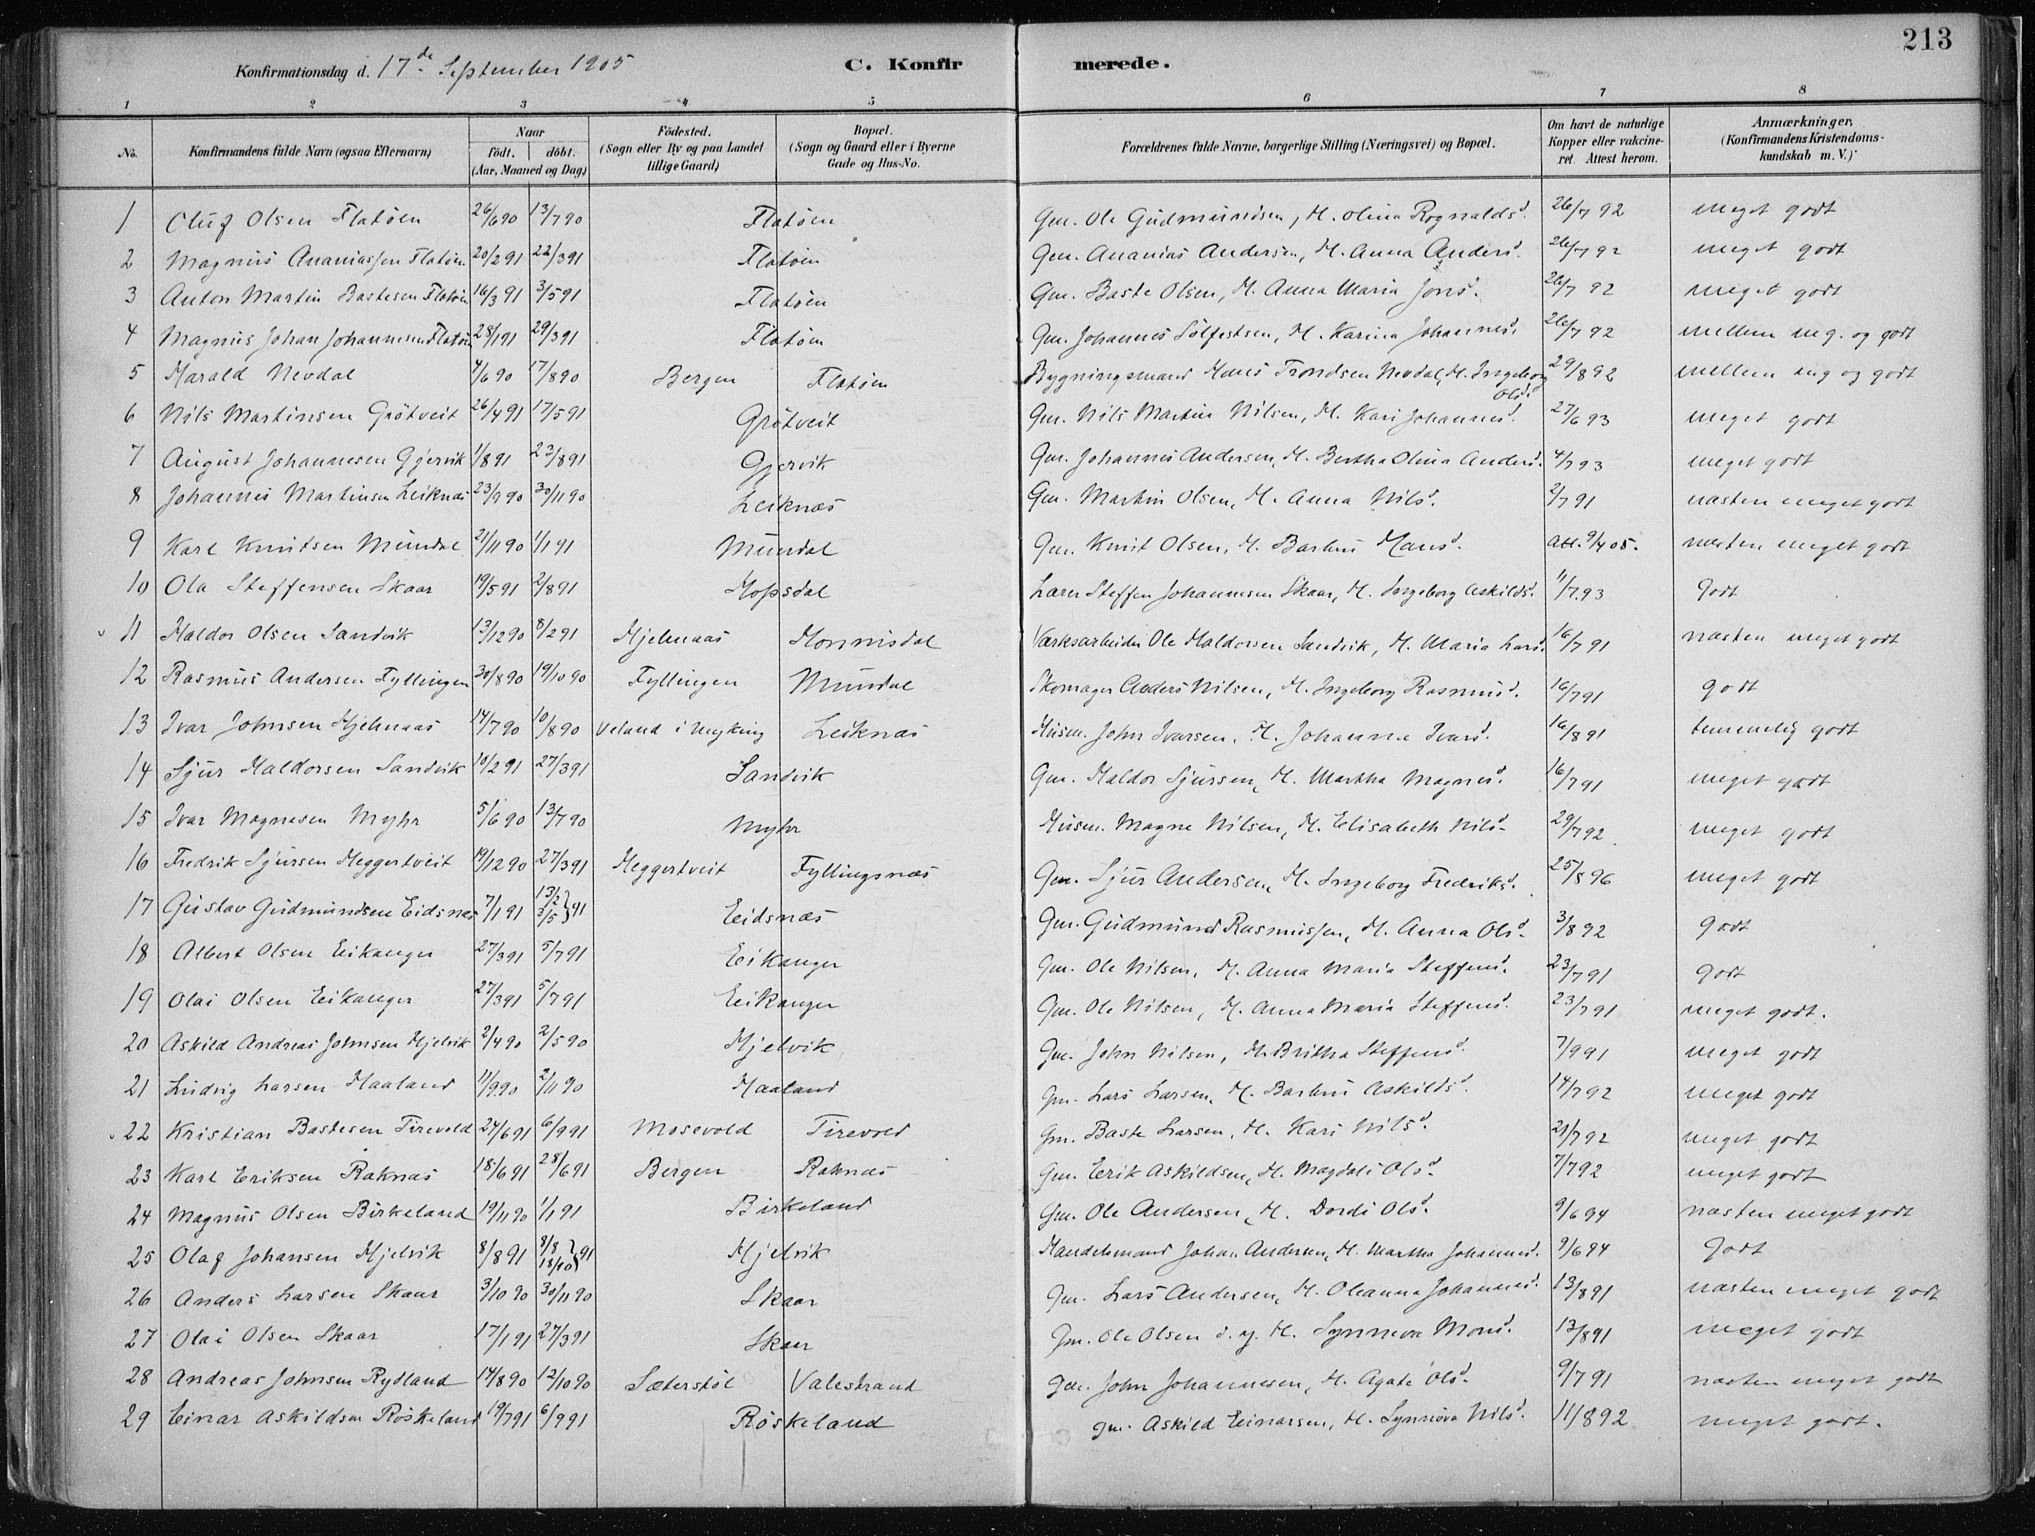 213
Konfirmationsdag d. 17de September 1905 C. Konfirmerede.
1 2 3 4 5 6 7 8
No. Konfirmandens fulde Navn (ogsaa Efternavn) Naar födt. döbt. (Aar, Maaned og Dag) Födested. (Sogn eller By og paa Landet tillige Gaard) Bopæl. (Sogn og Gaard eller i Byerne Gade og Hus-No. Forældrenes fulde Navne, borgerlige Stilling (Næringsvei) og Bopæl. Om havt de naturlige Kopper eller vakcineret. Attest herom. Anmærkninger. (Konfirmandens Kristendomskundskab m. V.)
1 Oluf Olsen Flatöen 26/6 90 13/7 90 Flatöen Gm. Ole Gudmundsen, H. Olina Rognaldsd. 26/7 92 meget godt
2 Magnus Ananiassen Flatöen 20/2 91 22/3 91 Flatöen Gm. Ananias Andersen, H. Anna Andersd. 26/7 92 meget godt
3 Anton Martin Bastesen Flatöen 16/3 91 3/5 91 Flatöen Gm. Baste Olsen, H. Anna Maria Jonsd. 26/7 92 meget godt
4 Magnus Johan Johannesen Flatöen 28/1 91 29/3 91 Flatöen Gm. Johannes Sölfestsen, H. Karina Johannesd. 26/7 92 mellem meg. og godt
5 Harald Nevdal 4/6 90 17/8 90 Bergen Flatöen Bygningsmand Hans Trondsen Nevdal, H. Ingeborg Olsd. 29/8 92 mellem meg og godt
6 Nils Martinsen Grötveit 26/4 91 17/5 91 Grötveit Gm. Nils Martin Nilsen, H. Kari Johannesd. 27/6 93 meget godt
7 August Johannesen Gjervik 1/8 91 23/8 91 Gjervik Gm. Johannes Andersen, H. Bertha Olina Andersd. 4/7 93 meget godt
8 Johannes Martinsen Leiknæs 23/9 90 30/11 90 Leiknæs Gm. Martin Olsen, H. Anna Nilsd. 2/7 91 næsten meget godt
9 Karl Knutsen Mundal 21/11 90 1/1 91 Mundal Gm. Knut Olsen, H. Barbru Hansd. att. 9/4 05. næsten meget godt
10 Ola Steffensen Skaar 19/5 91 2/8 91 Hopsdal Lærer Steffen Johannesen Skaar, H. Ingeborg Askildsd. 11/7 93 Godt
11 Haldor Olsen Sandvik 13/12 90 8/2 91 Hjelmaas Hommisdal Værksarbeider Ole Haldorsen Sandvik, H. Maria Larsd. 16/7 91 næsten meget godt
12 Rasmus Andersen Fyllingen 30/8 90 19/10 90 Fyllingen Mundal Skomager Anders Nilsen, H. Ingeborg Rasmusd. 16/7 91 godt
13 Ivar Johnsen Hjelmaas 14/7 90 10/8 90 Veland i Myking Leiknæs Husm. John Ivarsen, H. Johanna Ivarsd. 16/8 91 temmelig godt
14 Sjur Haldorsen Sandvik 10/2 91 27/3 91 Sandvik Gm. Haldor Sjursen, H. Martha Magnesd. 16/7 91 meget godt
15 Ivar Magnesen Myhr 5/6 90 13/7 90 Myhr Husm. Magne Nilsen, H. Elisabeth Nilsd. 29/7 92 meget godt
16 Fredrik Sjursen Heggertveit 19/12 90 27/3 91 Heggertveit Fyllingsnæs Gm. Sjur Andersen, H. Ingeborg Fredriksd. 25/8 96 meget godt
17 Gustav Gudmundsen Eidsnæs 7/1 91 13/2 3/5 } 91 Eidsnæs Gm. Gudmund Rasmussen, H. Anna Olsd. 3/8 92 Godt
18 Albert Olsen Eikanger 27/3 91 5/7 91 Eikanger Gm. Ole Nilsen, H. Anna Maria Steffensd. 23/7 91 godt
19 Olai Olsen Eikanger 27/3 91 5/7 91 Eikanger Gm. Ole Nilsen, H. Anna Maria Steffensd. 23/7 91 meget godt.
20 Askild Andreas Johnsen Hjelvik 2/4 90 2/5 90 Hjelvik Gm. John Nilsen, H. Britha Steffensd. 7/9 91 meget godt
21 Ludvig Larsen Haaland 11/9 90 2/11 90 Haaland Gm. Lars Larsen, H. Barbru Askildsd. 14/7 92 meget godt
22 Kristian Bastesen Tirevold 24/6 91 6/9 91 Mosevold Tirevold Gm. Baste Larsen, H. Kari Nilsd. 21/7 92 meget godt
23 Karl Eriksen Raknæs 18/6 91 28/6 91 Bergen Raknæs Gm. Erik Askildsen, H. Magdali Olsd. 7/7 92 meget godt
24 Magnus Olsen Birkeland 19/11 90 1/1 91 Birkeland Gm. Ole Andersen, H. Dordi Olsd. 9/6 94 næsten meget godt
25 Olaf Johansen Hjelvik 8/8 91 8/8 18/10 } 91 Hjelvik Handelsmand Johan Andersen, H. Martha Johannesd. 9/6 94 Godt
26 Anders Larsen Skaar 3/10 90 30/11 90 Skaar Gm. Lars Andersen, H. Oleanna Johannesd. 13/8 91 næsten meget godt
27 Olai Olsen Skaar 17/1 91 27/3 91 Skaar Gm. Ole Olsen d. y. H. Synneva Monsd. 13/8 91 meget godt
28 Andreas Johnsen Rydland 14/8 90 12/10 90 Sæterstöl Valestrand Gm. John Johannesen, H. Agate Olsd. 9/7 91 næsten meget godt
29 Einar Askildsen Röskeland 19/7 91 6/9 91 Röskeland Gm. Askild Einarsen, H. Synnöva Nilsd. 11/8 92 meget godt.